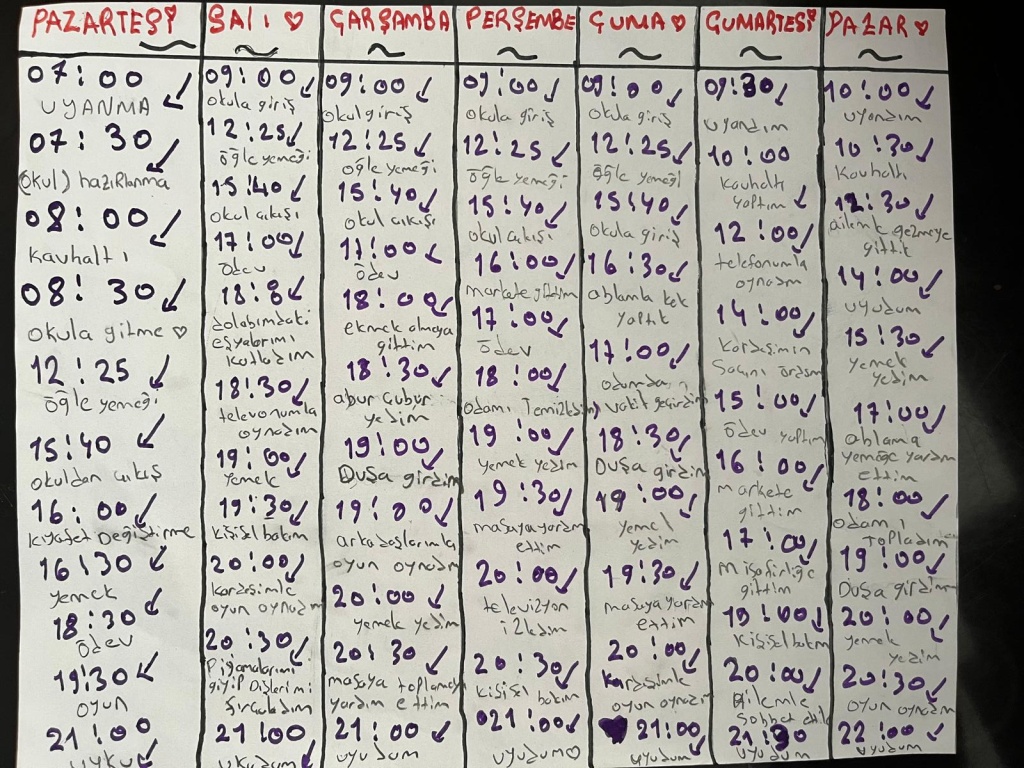 PAZARTESİ
07:00
UYANMA
07:30
(Okul) hazırlanma
08:00
kavhaltı
08:30
okula gitme ♡
12:25
öğle yemeği
15:40
okuldan çıkış
16:00
kıyafet Değiştirme
16:30
yemek
18:30
ödev
19:30
oyun
21:00
uyku
SALI ♡
09:00
okula giriş
12:25
öğle yemeği
15:40
okul çıkışı
17:00
ödev
18:8
dolabımdaki
eşyalarımı
katladım
18:30
televonumla
oynadım
19:00
yemek
19:30
kişisel bakım
20:00
kardeşimle
oyun oynadım
20:30
Pijamalarımı
giyip Dişlerimi
fırçaladım
21:00
ukudum
ÇARŞAMBA
09:00
okul giriş
12:25
öğle yemeği
15:40
okul çıkışı
17:00
ödev
18:00
ekmek almaya
gittim
18:30
abur cubur
yedim
19:00
Duşa girdim
19:00
arkadaşlarımla
oyun oynadım
20:00
yemek yedim
20:30
masaya toplamaya
yardım ettim
21:00
uyudum
PERŞEMBE
09:00
okula giriş
12:25
öğle yemeği
15:40
okul çıkışı
16:00
markete gittim
17:00
ödev
18:00
odamı Temizledim
19:00
yemek yedim
19:30
masaya yardım
ettim
20:00
televizyon
izledim
20:30
kişisel bakım
21:00
uyudum♡
ÇUMA ♡
09:00
okula giriş
12:25
öğle yemeği
15:40
okula giriş
16:30
ablamla kek
yaptık
17:00
odamda
vakit geçirdim
18:30
Duşa girdim
19:00
yemek
yedim
19:30
masaya yardım
ettim
20:00
kardeşimle
oyun oynadım
21:00
uyudum
ÇUMARTESİ
09:30
uyandım
10:00
kavhaltı
yaptım
12:00
telefonumla
oynadım
14:00
kardeşimin
Saçını ördüm
15:00
ödev yaptım
16:00
markete
gittim
17:00
misafirliğe
gittim
19:00
kişisel bakım
20:00
Ailemle
sohbet
21:30
uyudum
PAZAR ♡
10:00
uyandım
10:30
kavhaltı
12:30
ailemle gezmeye
gittik
14:00
uyudum
15:30
yemek
yedim
17:00
ablama
yemeğe yardım
ettim
18:00
odamı
topladım
19:00
Duşa girdim
20:00
yemek
yedim
20:30
oyun oynadım
22:00
uyudum